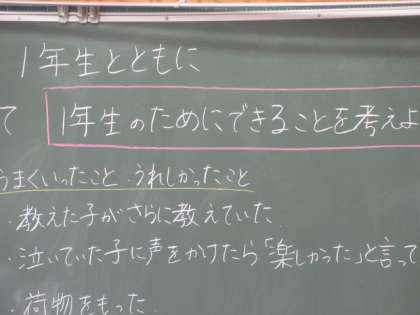 1年生とともに
て 1年生のためにできることを考えよ
うまくいったこと・うれしかったこと
・教えた子がさらに教えていた
・泣いていた子に声をかけたら「楽しかった」と言って
・荷物をもった